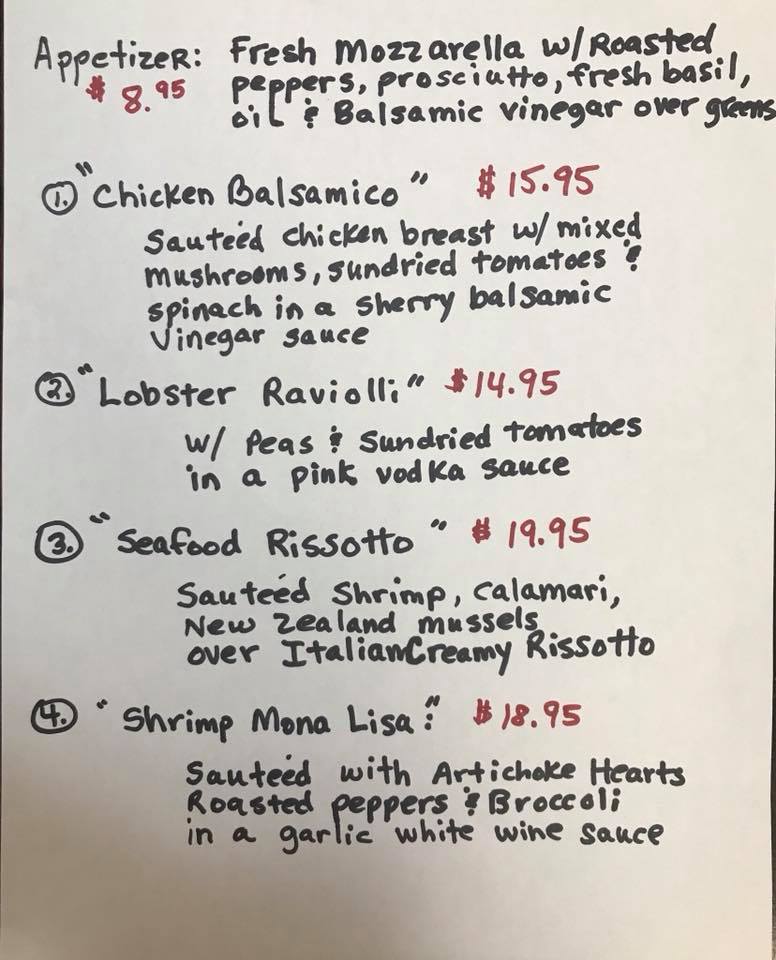 Appetizer: Fresh Mozzarella w/Roasted
$8.95 peppers, prosciutto, fresh basil,
oil & Balsamic vinegar over greens
1. "Chicken Balsamico" $15.95
Sauteéd chicken breast w/ mixed
mushrooms, sundried tomatoes &
spinach in a sherry balsamic
vinegar sauce
2. "Lobster Raviolli" $14.95
w/ Peas & Sundried tomatoes
in a pink vodka sauce
3. "Seafood Rissotto" $19.95
Sauteéd Shrimp, Calamari,
New Zealand mussels
over Italian Creamy Rissotto
4. "Shrimp Mona Lisa:" $18.95
Sauteéd with Artichoke Hearts
Roasted peppers & Broccoli
in a garlic white wine sauce